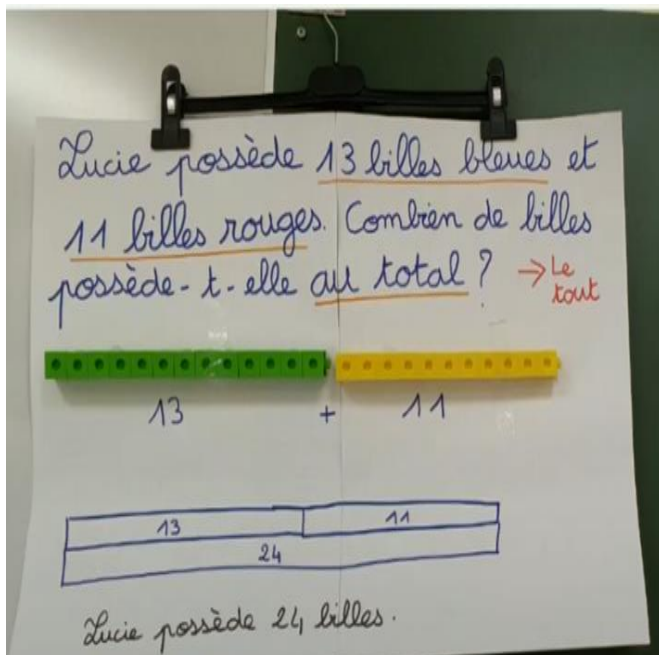 Lucie possède 13 billes bleues et
11 billes rouges. Combien de billes
possède-t-elle au total ? → Le
tout
13 + 11
13 11
24
Lucie possède 24 billes.